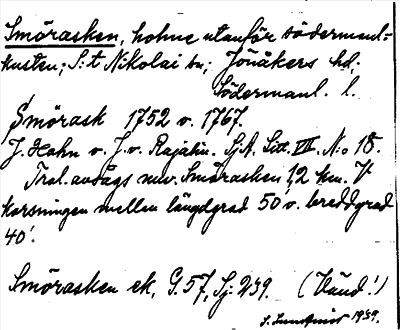 Smörasken, holme utanför Södermanl=
kusten; S:t Nikolai sn; Jönåkers hd;
Södermanl. l.
Smörask 1752 o. 1767.
J. Hahn o. J. v. Rajalin. Sj.A. Sid. VIII. N:o 18.
Trol. avsågs nuv. Smörasken 1,2 km. V
korsningen mellan längdgrad 50 o. breddgrad
40'.
Smörasken ek. G. 57, Sj: 239. (Vänd!)
S. Lundqvist 1939.